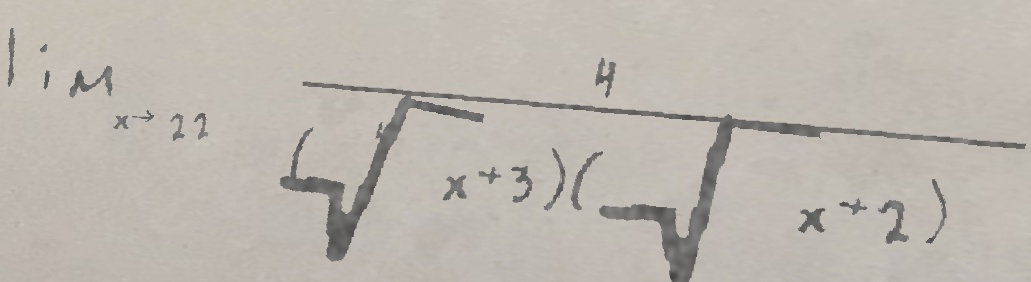 lim x→22 4 / (√x+3)(√x+2)